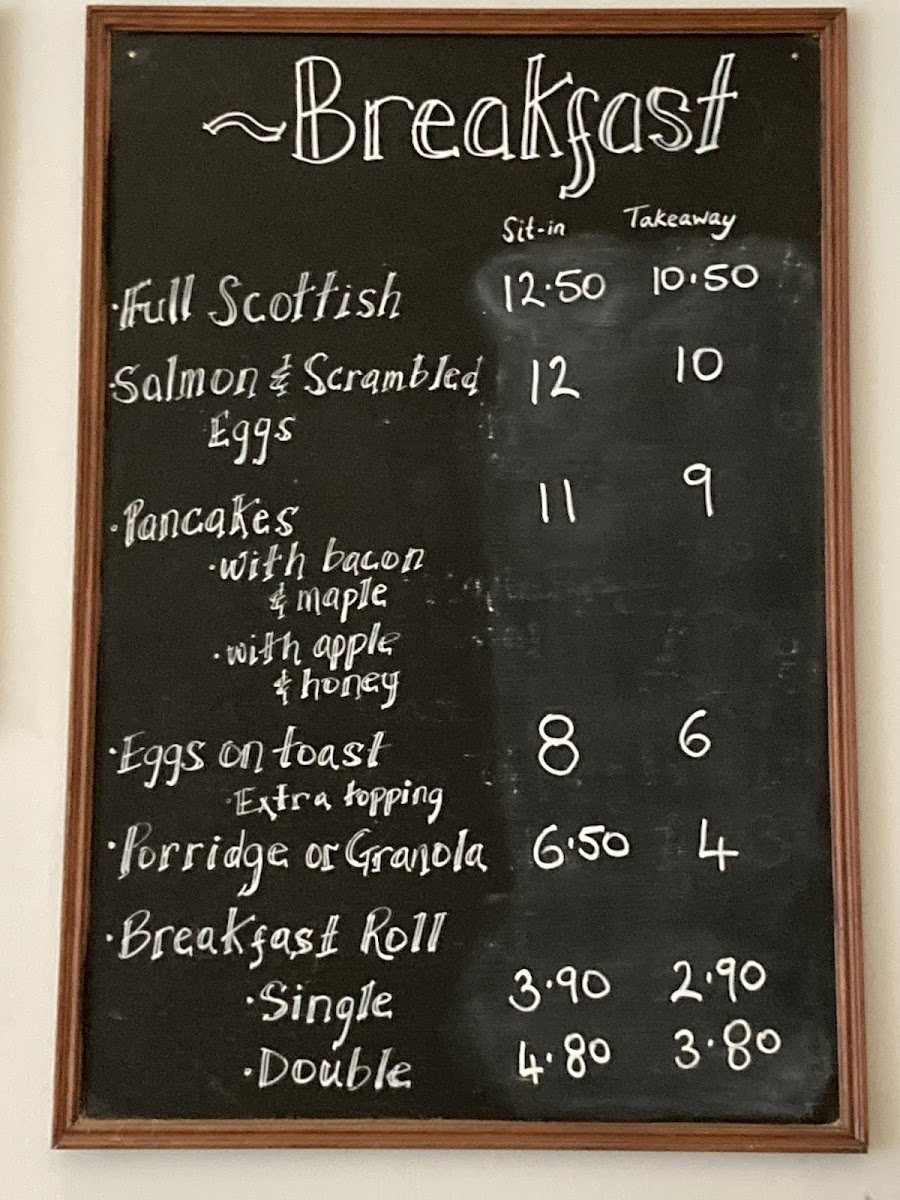 ~Breakfast
Sit-in Takeaway
·Full Scottish 12·50 10·50
·Salmon & Scrambled 12 10
Eggs
·Pancakes 11 9
·with bacon
& maple
·with apple
& honey
·Eggs on toast 8 6
·Extra topping
·Porridge or Granola 6·50 4
·Breakfast Roll
·Single 3·90 2·90
·Double 4·80 3·80